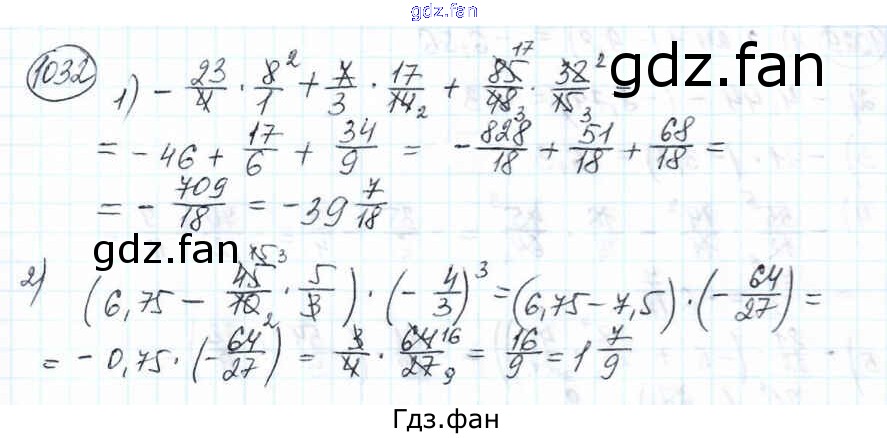 gdz.fan
1032
1) - 23/4 · 8²/1 + 7/3 · 17/14₂ + 85¹⁷/48₃ · 32²/15³ =
gdz.fan
= - 46 + 17/6 + 34/9 = - 828/18 + 51/18 + 68/18 =
= - 709/18 = - 39 7/18
gdz.fan
2) (6,75 - 45¹⁵ ³/10₂ · 5/3) · (- 4/3)³ = (6,75 - 7,5) · (- 64/27) =
= - 0,75 · (- 64/27) = 3/4 · 64¹⁶/27₉ = 16/9 = 1 7/9
Гдз.фан